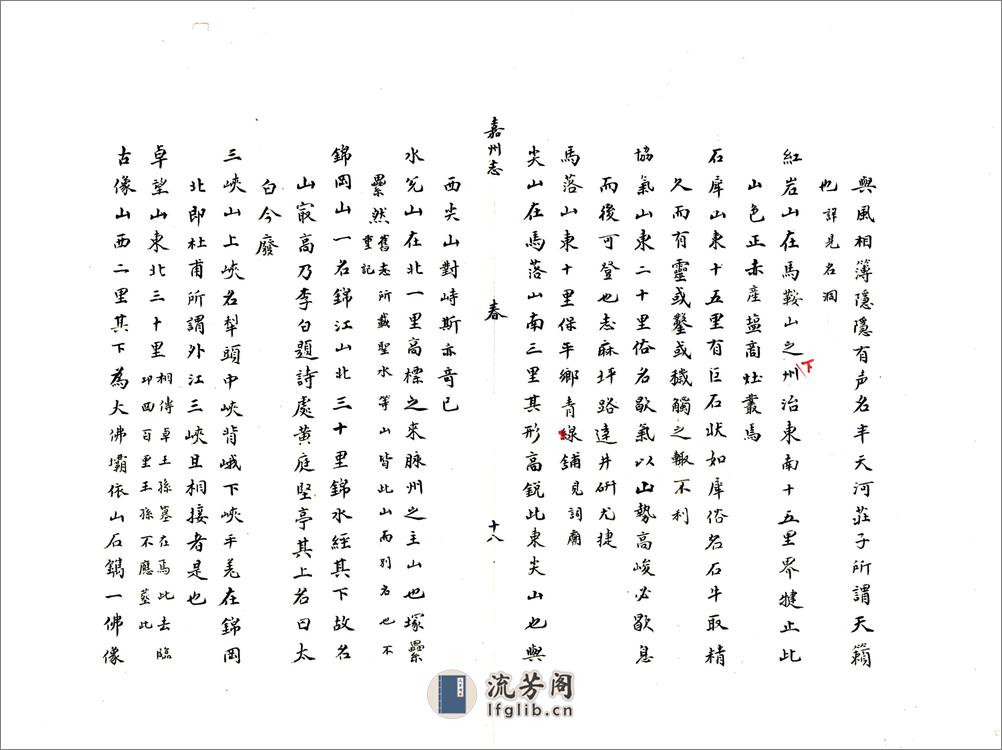 與風相簿隱隱有声名半天河莊子所謂天籟
也詳見名洞
紅岩山在馬鞍山之州治東南十五里界犍止此
下
山色正赤産塩商灶叢馬
石犀山東十五里有巨石狀如犀俗名石牛取精
久而有靈或鑿或穢觸之輙不利
協氣山東二十里俗名歇氣以山勢高峻必歇息
而後可登也志麻坪路達井研尤捷
馬落山東十里保平鄉青綠鋪見詞廟
尖山在馬落山南三里其形高銳此東尖山也與
嘉州志
春
十八
西尖山對峙斯亦竒已
水兊山在北一里高標之來脉州之主山也塚纍
纍然舊志所載聖水等山皆此山而别名也不
重記
錦岡山一名錦江山北三十里錦水經其下故名
山㝡高乃李白題詩處黄庭堅亭其上名曰太
白今廢
三峽山上峽名犁頭中峽背峨下峽平羌在錦岡
北即杜甫所謂外江三峽且相接者是也
卓望山東北三十里相傳卓王孫墓在焉此去臨
邛四百里王孫不應塟此
古像山西二里其下為大佛壩依山石鐫一佛像
流芳阁
lfglib.cn